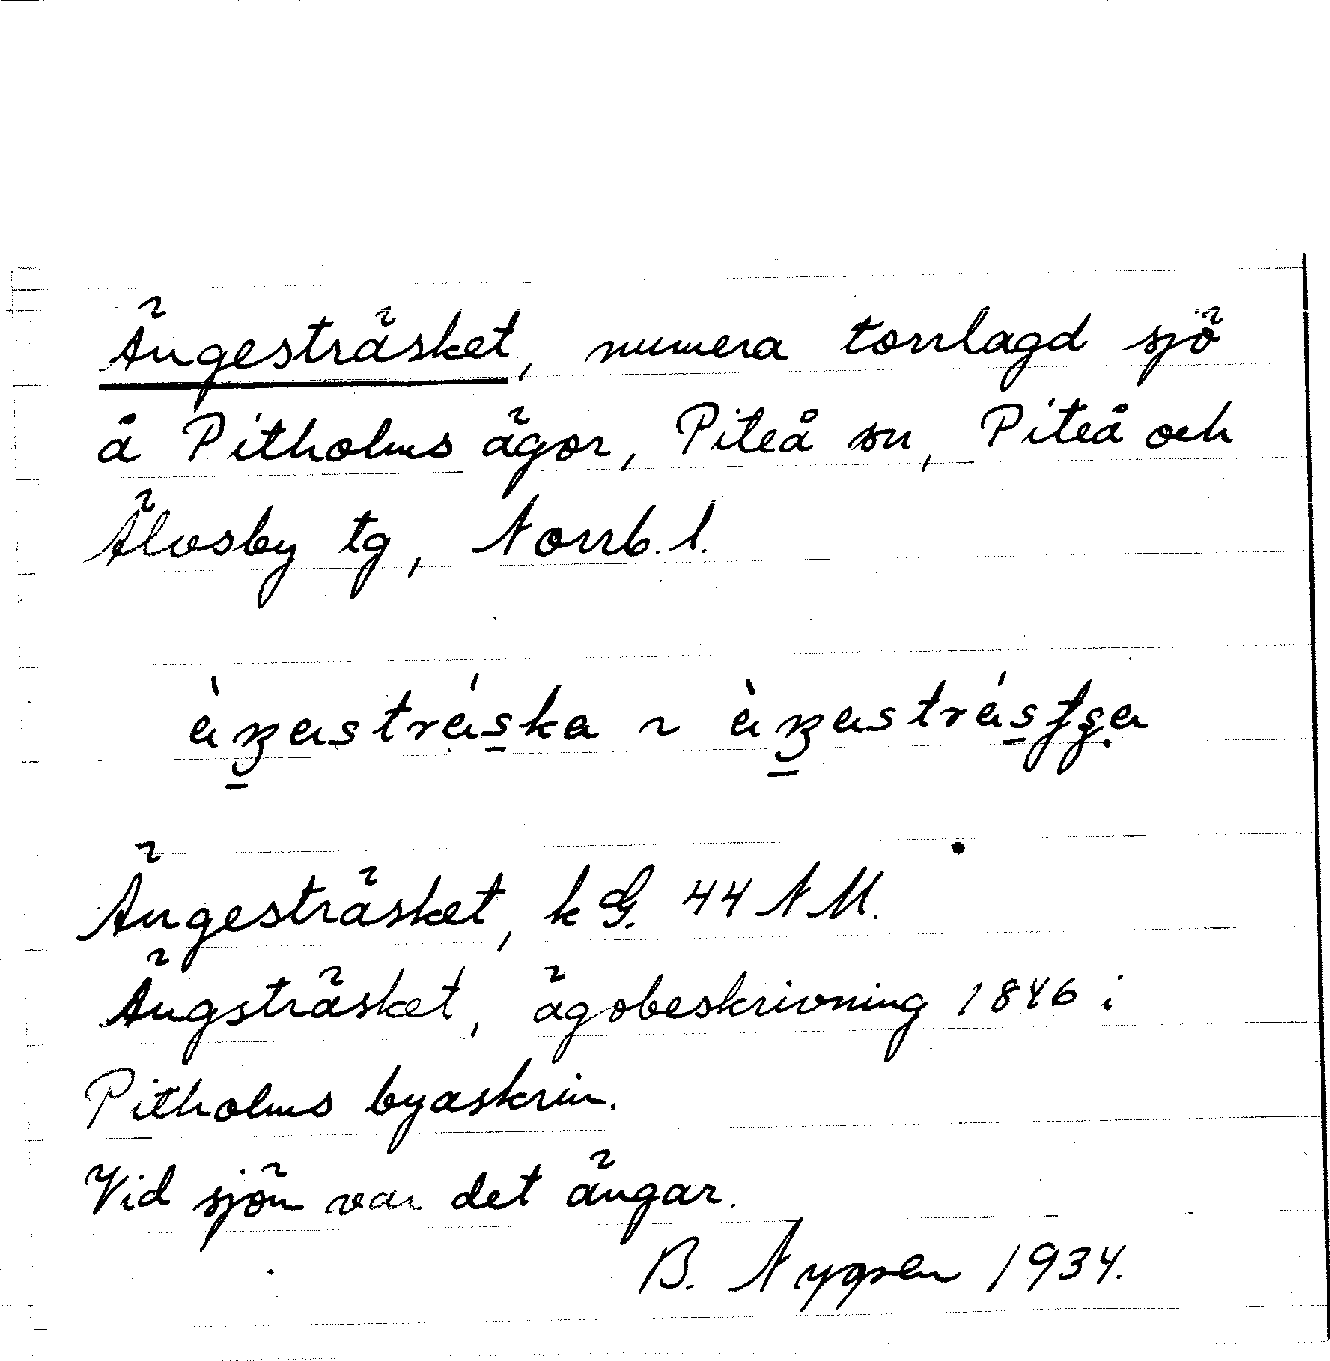 Ängesträsket, numera torrlagd sjö
å Pitholms ägor, Piteå sn, Piteå och
Älvsby tg, Norrb. l.
Ängesträsket, k G. 44 N M.
Ängsträsket, ägobeskrivning 1846 i
Pitholms byaskrin.
Vid sjön var det ängar.
B. Nygren 1934.